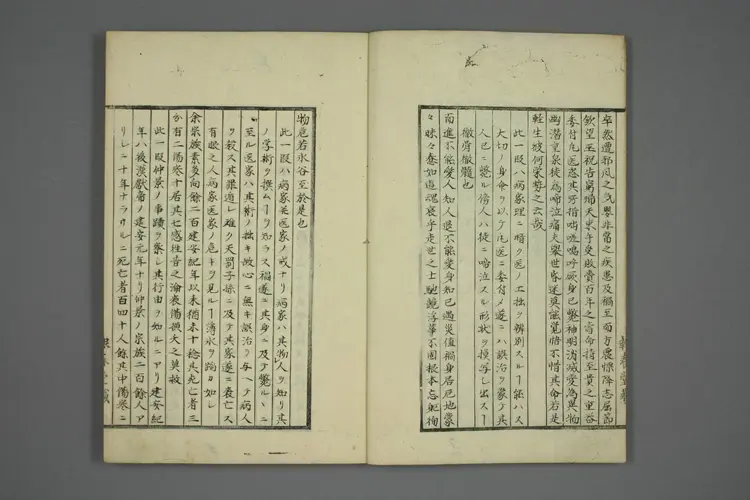 卒然遭邪風之気嬰非常之疾患及禍至而方震慄降志屈節
欽望巫祝告窮帰天束手受敗賚百年之寿命持至貴之重器
委付凡医恣其所措咄嗟嗚呼厥身已斃神明消滅変為異物
幽潜重泉徒為啼泣痛夫挙世昏迷莫能覚悟不惜其命若是
軽生彼何栄勢之云哉
此一段ハ病家理ニ暗ク医ノ工拙ヲ辨別スルー能ハス
大切ノ身命ヲ以テ凡医ニ委付メ遂ニハ誤治ヲ蒙テ其
人已ニ斃ル傍人ハ徒ニ啼泣スル形状ヲ模写シ出スー
徹骨徹髄也
而進不能愛人知人退不能愛身知己遇災値禍身居厄地蒙
々昧々惷如遊魂哀乎趨世之士馳競浮華不固根本忘躯徇
物危若氷谷至於是也
此一段ハ病家並医家ノ戒ナリ病家ハ其人ヲ知リ其
ノ学術ヲ撰ムーヲ知ラス禍遂ニ其身ニ及テ斃ルヽニ
至ル医家ハ其術ノ拙キ故心ニ無キ誤治ヲ与ヘテ病人
ヲ殺ス其罪遁レ難ク天罰子孫ニ及テ其家遂ニ衰亡ス
有眼之人病家医家ノ危キヲ見ルー薄氷ヲ踏カ如シ
余宗族素多向余二百建安紀年以来猶未十稔其死亡者三
分有二傷寒十居其七感往昔之淪喪傷横夭之莫救
此一段仲景ノ事蹟ヲ察シ其行由ヲ知ルニアリ建安紀
年ハ後漢献帝ノ建安元年ナリ仲景ノ宗族二百餘人ア
リシニ十年ナラサルニ死亡者百四十人餘其中傷寒ニ